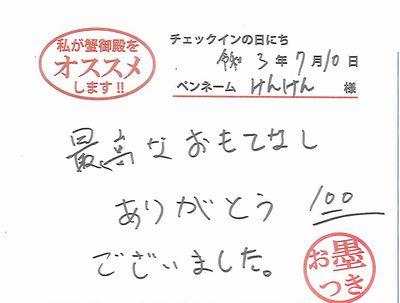 私が蟹御殿を
オススメ
します!!
チェックインの日にち
令和 3 年 7 月 10 日
ペンネーム けんけん 様
最高なおもてなし
ありがとう 100
ございました。
お墨
つき